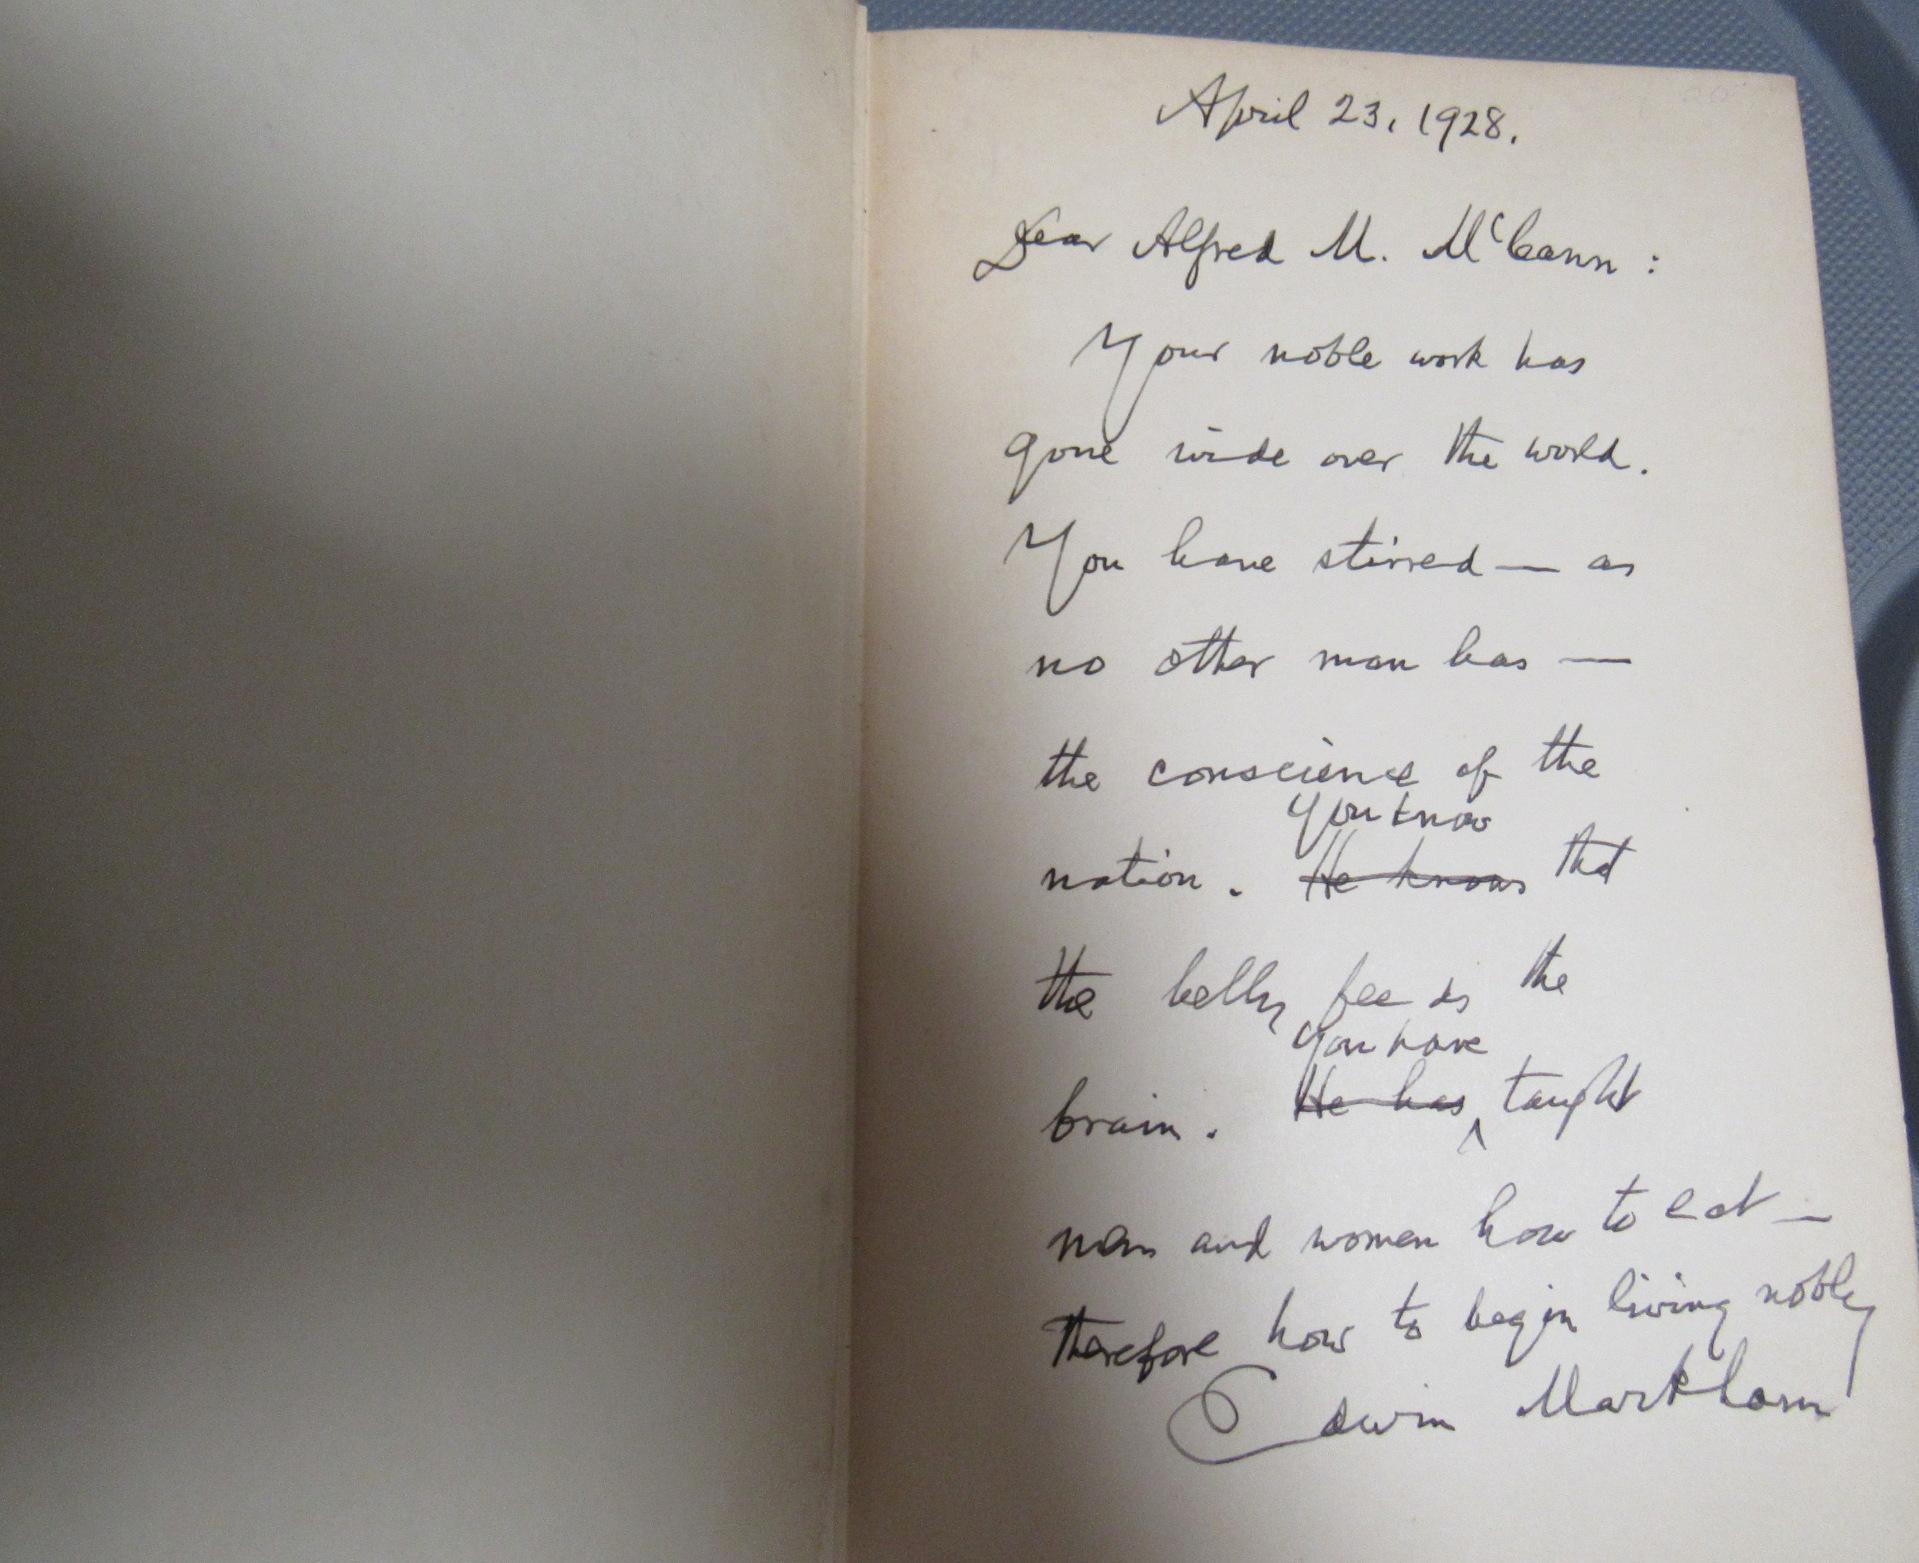 April 23, 1928.
Dear Alfred M. McCann:
Your noble work has
gone wide over the world.
You have stirred — as
no other man has —
the conscience of the
you know
nation. He knows that
the belly feeds the
you have
brain. He has taught
men and women how to eat —
therefore how to begin living nobly
Edwin Markham